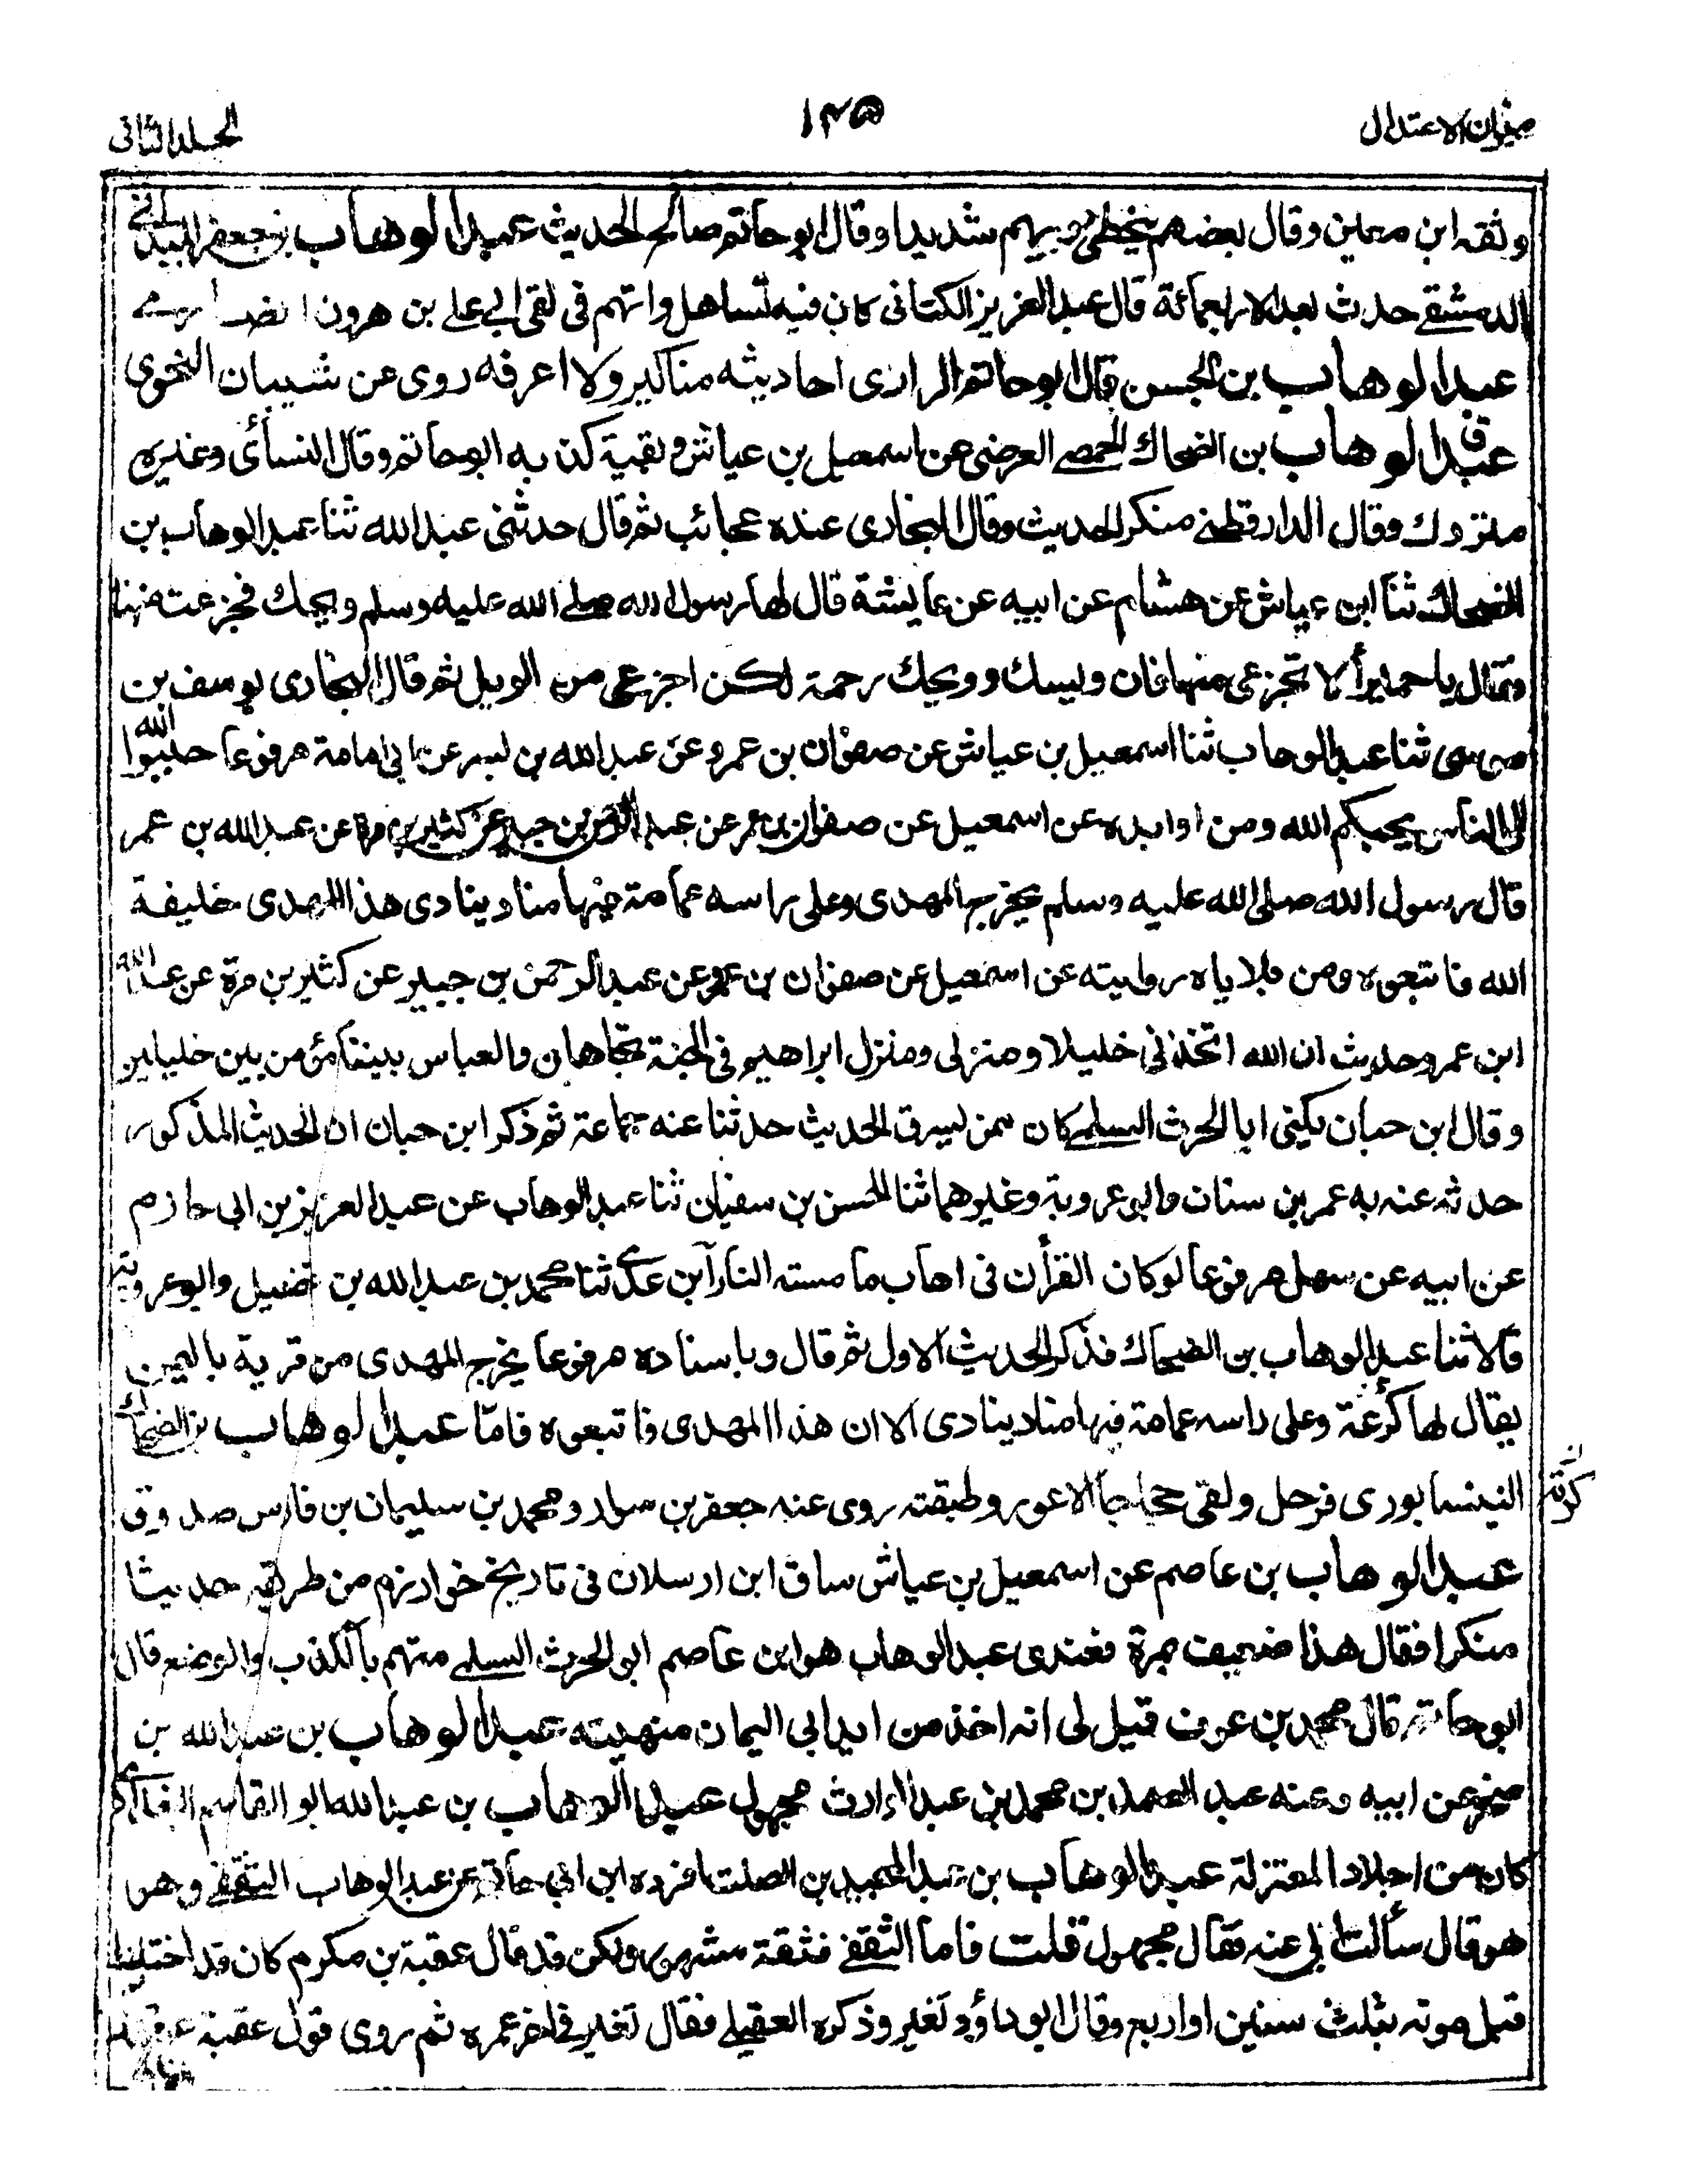 ميزان الاعتدال
١٣٥
الجلد الثانى
وثقه ابن معين وقال بعضهم يخطئ ويهم شديدا وقال ابو حاتم صالح الحديث عبد الوهاب بن جعفر الميدانى
الدمشقے حدث بعد الاربعمائة قال عبد العزيز الكتانى كان فيه تساهل واتهم فى لقى ابي علے بن هرون
عبد الوهاب بن الحسن قال ابو حاتم الرازى احاديثه مناكير ولا اعرفه روى عن شيبان النحوى
عبد الوهاب بن الضحاك الحمصے العرضى عن اسمعيل بن عياش وبقية كذبه ابو حاتم وقال النسأئ وغيره
متروك وقال الدارقطنے منكر الحديث وقال البخارى عنده عجائب ثم قال حدثنى عبد الله ثنا عبد الوهاب بن
الضحاك ثنا ابن عياش عن هشام عن ابيه عن عايشة قال لها رسول الله صلے الله عليه وسلم ويحك فجزعت منها
فقال يا حميرأ لا تجزعى منها فان ويسك وويحك رحمة لكن اجزعى من الويل ثم قال البخارى يوسف بن
موسى ثنا عبد الوهاب ثنا اسمعيل بن عياش عن صفوان بن عمرو عن عبد الله بن بسر عن ابى امامة مرفوعا حببوا الله
الى الناس يحببكم الله ومن اوابده عن اسمعيل عن صفوان بن عمر عن عبد الرحمن بن جبير عن كثير بن مرة عن عبد الله بن عمر
قال رسول الله صلى الله عليه وسلم يخرج المهدى وعلى راسه عمامة فيها مناد ينادى هذا المهدى خليفة
الله فاتبعوه ومن بلاياه روايته عن اسمعيل عن صفوان بن عمرو عن عبد الرحمن بن جبير عن كثير بن مرة عن عبد الله
ابن عمرو حديث ان الله اتخذنى خليلا ومنزلى ومنزل ابراهيم فى الجنة تجاهان والعباس بيننا مؤمن بين خليلين
وقال ابن حبان يكنى ابا الحرث السلمے كان ممن يسرق الحديث حدثنا عنه جماعة ثم ذكر ابن حبان ان الحديث المذكور
حدثه عنه به عمر بن سنان وابو عروبة وغيرهما ثنا الحسن بن سفيان ثنا عبد الوهاب عن عبد العزيز بن ابى حازم
عن ابيه عن سهل مرفوعا لو كان القرأن فى اهاب ما مسته النار آبن عدى ثنا محمد بن عبد الله بن فضيل وابو عروبة
قالا ثنا عبد الوهاب بن الضحاك فذكر الحديث الاول ثم قال وباسناده مرفوعا يخرج المهدى من قرية باليمن
يقال لها كرعة وعلى راسه عمامة فيها مناد ينادى الا ان هذا المهدى فاتبعوه فامّا عبد الوهاب بن الضحاك
النيسابورى فرحل ولقى حجاجا الاعور وطبقته روى عنه جعفر بن سوار ومحمد بن سليمان بن فارس صدوق
عبد الوهاب بن عاصم عن اسمعيل بن عياش ساق ابن ارسلان فى تاريخ خوارزم من طريقه حديثا
منكرا فقال هذا ضعيف بمرة فعندى عبد الوهاب هو ابن عاصم ابو الحرث السلمے متهم بالكذب والوضع قال
ابو حاتم قال محمد بن عوف قيل لى انه اخذ من ابى اليمان عبد الوهاب بن عبد الله بن
صخر عن ابيه وعنه عبد الصمد بن محمد بن عبد الوارث مجهول عبد الوهاب بن عبد الله ابو القاسم
كان من اجلاد المعتزلة عبد الوهاب بن عبد المجيد بن الصلت افرده ابن ابى حاتم عن عبد الوهاب الثقفے وهو
هو قال سألت ابى عنه فقال مجهول قلت فاما الثقفے فثقة مشهور ولكن قد قال عقبة بن مكرم كان قد اختلط
قبل موته بثلث سنين او اربع وقال ابو داؤد تغير وذكره العقيلے فقال تغير فى اخر عمره ثم روى قول عقبة